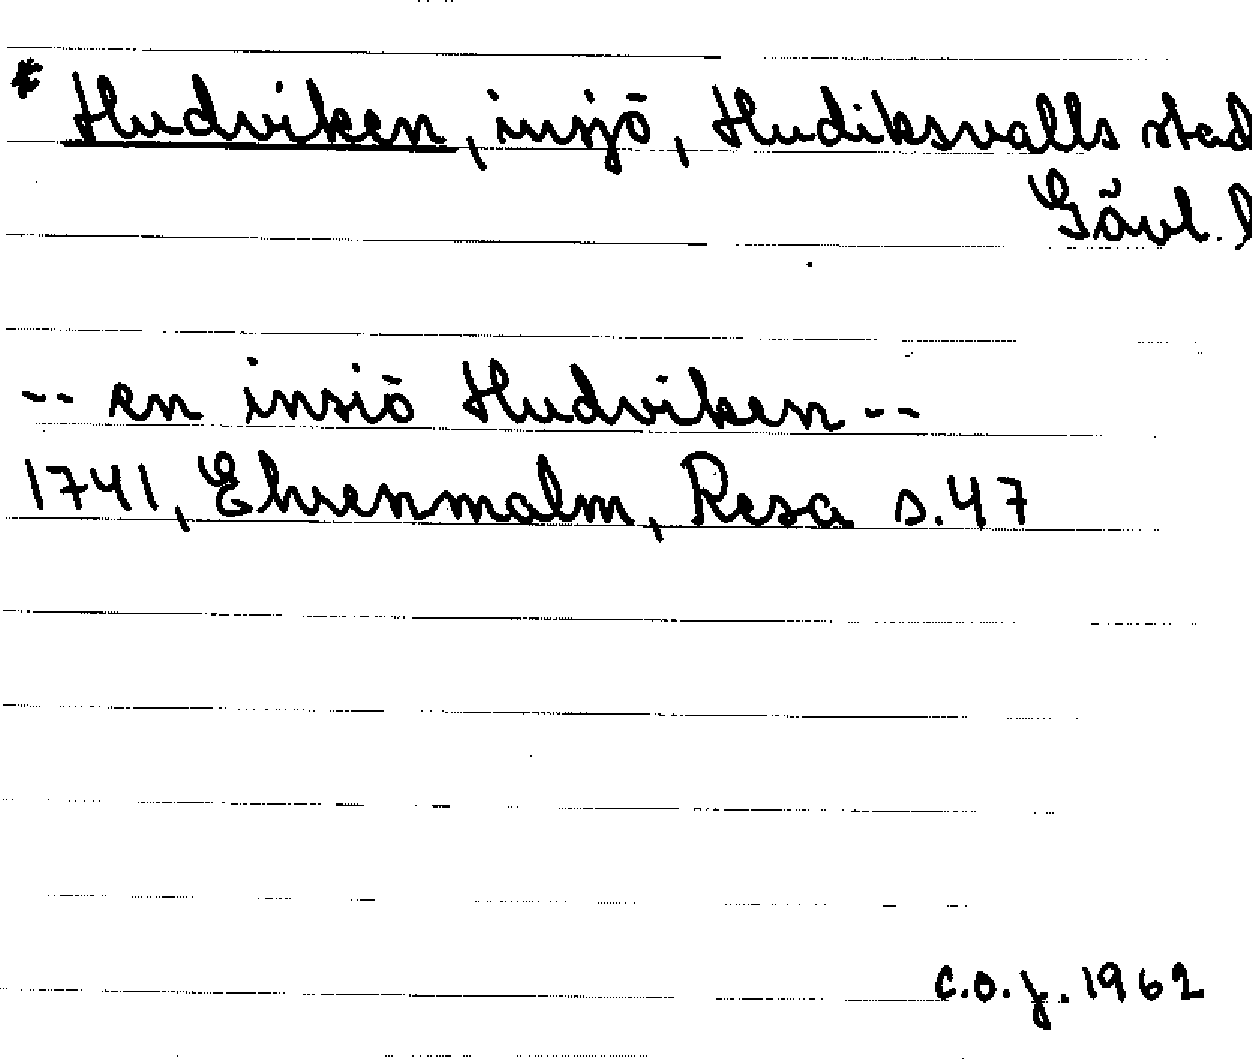 * Hudviken, insjö, Hudiksvalls stad
Gävl. l
-- en insiö Hudviken --
1741, Ehrenmalm, Resa s. 47
C.O.J. 1962